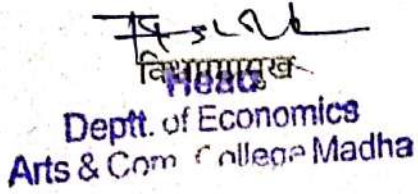 विभागप्रमुख
Head
Deptt. of Economics
Arts & Com College Madha